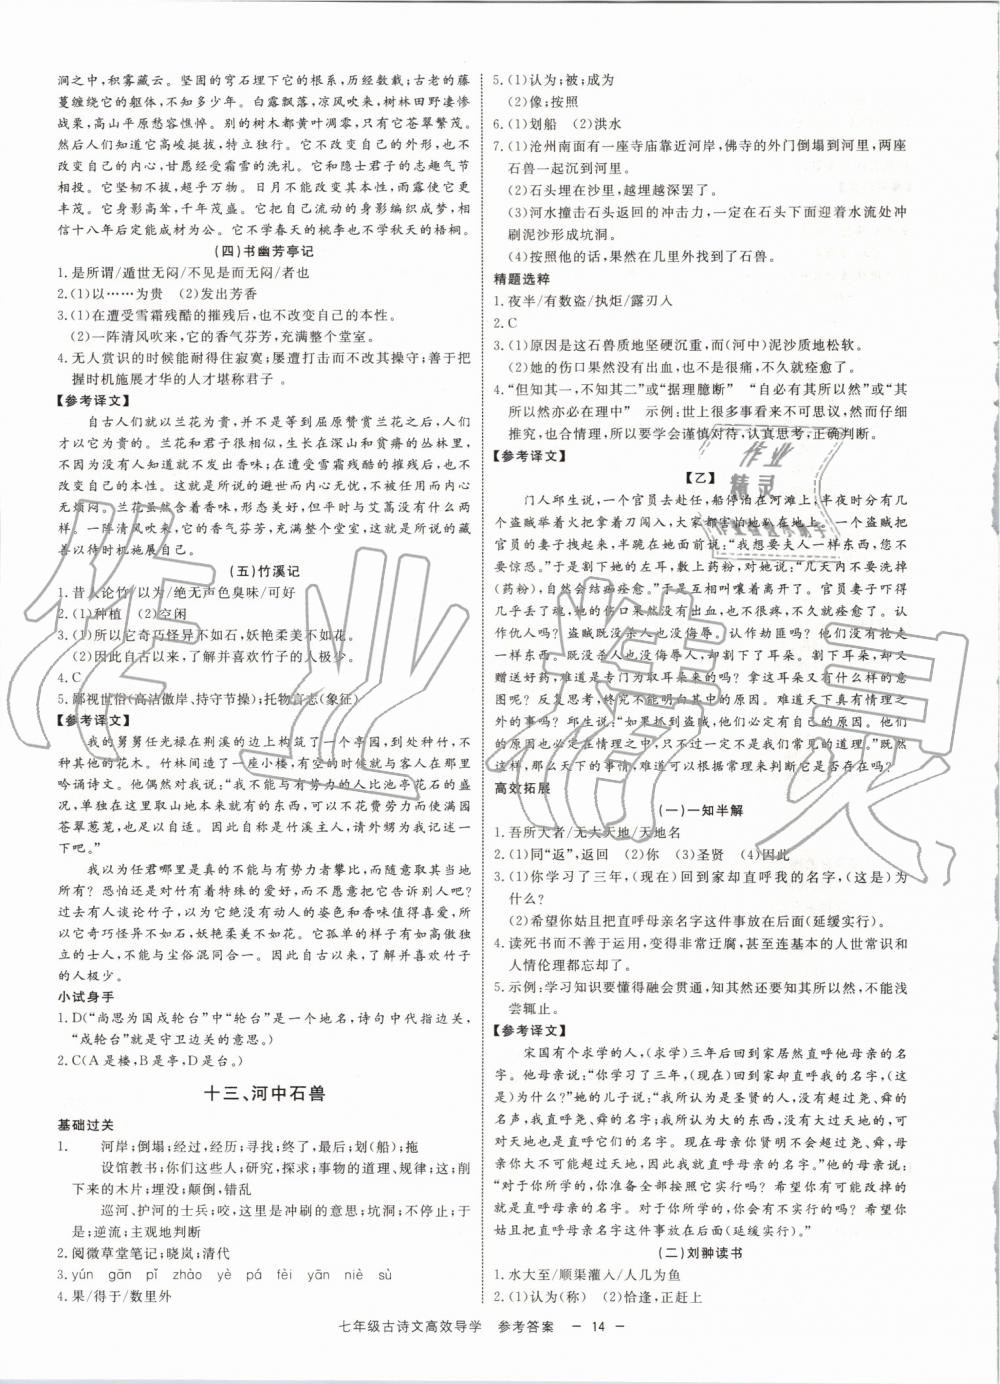 涧之中,积雾藏云。坚固的穹石埋下它的根系,历经数载;古老的藤
蔓缠绕它的躯体,不知多少少年。白露飘落,凉风吹来,树林田野凄惨
战栗,高山平原愁容憔悴。别的树木都黄叶凋零,只有它苍翠繁茂。
然后人们知道它高峻挺拔,特立独行。它不改变自己的外形,也不
改变自己的内心,甘愿历经雪霜的洗礼。它和隐士君子的志趣气节
相投。它坚韧不拔,超乎万物。日月不能让它改变,雨露使它更
丰茂。它身影高耸,千年茂盛。它把自己流动的身影编织成梦,相
信十八年后定能成材为公。它不学春天的桃李也不学秋天的梧桐。
(四)书幽芳亭记
1.是所谓/遁世无闷/不见是而无闷/者也
2.(1)以……为贵 (2)发出芳香
3.(1)在遭受雪霜残酷的摧残后,它也不改变自己的本性。
(2)一阵清风吹来,它的香气芬芳,充满了整个堂室。
4.无人赏识的时候能耐得住寂寞;屡遭打击而不改其操守;善于把
握时机施展才华的人才堪称君子。
【参考译文】
自古人们就以兰花为贵,并不是等到屈原赞赏兰花之后,人们
才以它为贵的。兰花和君子很相似,生长在深山和贫瘠的丛林里,
不因为没有人知道就不发出香味;在遭受雪霜残酷的摧残后,也不
改变自己的本性。这就是所说的避世而内心无忧,不被任用而内心
无烦闷。兰花虽然含着香味,形态美好,但平时与艾蒿没有什么两
样。一阵清风吹来,它的香气芬芳,充满了整个堂室,这就是所说的藏
善以待时机施展自己。
(五)竹溪记
1.昔人论竹/以为/绝无声色臭味/可好
2.(1)种植 (2)空闲
3.(1)所以它奇巧怪异不如石,妖艳柔美不如花。
(2)因此自古以来,了解并喜欢竹子的人极少。
4.C
5.鄙视世俗(高洁傲岸、持守节操);托物言志(象征)
【参考译文】
我的舅舅任光禄在荆溪的边上构筑了一个亭园,到处种竹,不
种其他的花木。竹林间造了一座小楼,有空的时候就与客人在那里
吟诵诗文。他偶然对我说:“我不能与有势力的人比池亭花石的盛
况,单独在这里取山地本来就有的东西,可以不花费劳力而使满园
苍翠葱茏,也足以自适。因此自称是竹溪主人,请外甥为我记述一
下吧。”
我以为任君哪里是真的不能与有势力者攀比,而随意取其当地
所有?恐怕还是对竹有着特殊的爱好,而不愿意把它告诉别人吧?
过去有人谈论竹子,以为它绝没有动人的姿色和香味值得喜爱,所
以它奇巧怪异不如石,妖艳柔美不如花。它孤单的样子有如高傲独
立的士人,不能与尘俗混同合一。因此自古以来,了解并喜欢竹子
的人极少。
小试身手
1.D(“尚思为国戍轮台”中“轮台”是一个地名,诗句中代指边关,
“戍轮台”就是守卫边关的意思。)
2.C(A是楼,B是亭,D是塔。)
十三、河中石兽
基础过关
1. 河岸;倒塌;经过,经历;寻找;终了,最后;划(船);拖
设馆教书;你们这些人;研究,探求;事物的道理、规律;这;削
下来的木片;埋没;颠倒,错乱
巡河、护河的士兵;咬,这里是冲刷的意思;坑洞;不停止;于
是;逆流;主观地判断
2.阅微草堂笔记;晓岚;清代
3.yún gān pǐ zhào yè pá fèi yān niè sù
4.果/得于/数里外
5.(1)认为;被;成为
(2)像;按照
6.(1)划船 (2)洪水
7.(1)沧州南面有一座寺庙靠近河岸,佛寺的外门倒塌到河里,两座
石兽一起沉到河里。
(2)石头埋在沙里,越埋越深罢了。
(3)河水撞击石头返回的冲击力,一定在石头下面迎着水流处冲
刷泥沙形成坑洞。
(4)按照他的话,果然在几里外找到了石兽。
精题选粹
1.夜半/有数盗/执炬/露刃入
2.C
3.(1)原因是这石兽质地坚硬沉重,而(河中)泥沙质地松软。
(2)她的伤口果然没有出血,也不是很痛,不久就痊愈了。
4.“但知其一,不知其二”或“据理臆断” “自必有其所以然”或“其
所以然亦必在理中” 示例:世上很多事看来不可思议,然而仔细
推究,也合情理,所以要学会谨慎对待,认真思考,正确判断。
【参考译文】
【乙】
门人邱生说,一个官员去赴任,船停泊在河滩上,半夜时分有几
个盗贼举着火把拿着刀闯入,大家都害怕地趴在地上。一个盗贼把
官员的妻子拽起来,半跪在她面前说:“我想要夫人一样东西,您不
要惊恐。”于是割下她的左耳,敷上药粉,对她说:“几天内不要洗
(药粉),自然会结痂痊愈。”于是相互叫嚷着离开了。官员妻子吓得
几乎丢了魂,她的伤口果然没有出血,也不很疼,不久就痊愈了。
认作仇人吗?盗贼既没杀人也没侮辱。认作劫匪吗?他们没有抢走
一样东西。既然没抢劫,也没侮辱人,却又割下了耳朵。割下耳朵,却又
赠送好药,这是专门为了割耳朵而来吗?拿这耳朵又有什么样的意
图呢?反复思考,终究不能明白其中的原因。难道天下真有情理之
外的事吗?邱生说:“如果抓到盗贼,他们必定有自己的原因。他们
的原因必定在情理之中,只是不是我们所见的常规的道理。”既然
这样,那么天下的事情,难道可以根据常理来判断它是否存在吗?
高效拓展
(一)一知半解
1.吾所大者/无大天地/天地名
2.(1)同“返”,返回 (2)你 (3)圣贤 (4)因此
3.(1)你学习了三年,(现在)回到家却直呼我的名字,(这是)为
什么?
(2)希望你姑且把直呼母亲名字这件事放在后面(延缓实行)。
4.读死书而不善于运用,变得非常迂腐,甚至连基本的人世常识和
人情伦理都忘却了。
5.示例:学习知识要懂得融会贯通,知其然还要知其所以然,不能浅
尝辄止。
【参考译文】
宋国有个求学的人,(求学)三年后回到家居然直呼他母亲的名
字。他母亲说:“你学习了三年,(现在)回到家却直呼我的名字,
(这是)为什么?”她的儿子说:“我所认为是圣贤的人,没有超过尧、舜的,(但对)尧、舜
的名声,我直呼他们的名字;我所认为大的东西,没有大过天地的,(但)
对天地也是直呼它们的名字。现在母亲你贤明不会超过尧、舜,母
亲你大不可能超过天地,因此我就直呼母亲的名字了。”他母亲说:
“对于你所学的,你准备全部拿来实行吗?希望你有可以更改的
名字来称呼我。对于你所学的,你将有一些不拿来实行吗?希望你
姑且把直呼母亲名字这件事放在后面(延缓实行)。”
(二)刘翀读书
1.水大至/顺渠灌入/人几为鱼
2.(1)认为(称) (2)恰逢,正赶上
七年级古诗文高效导学 参考答案 － 14 －
作业精灵
作业
精灵